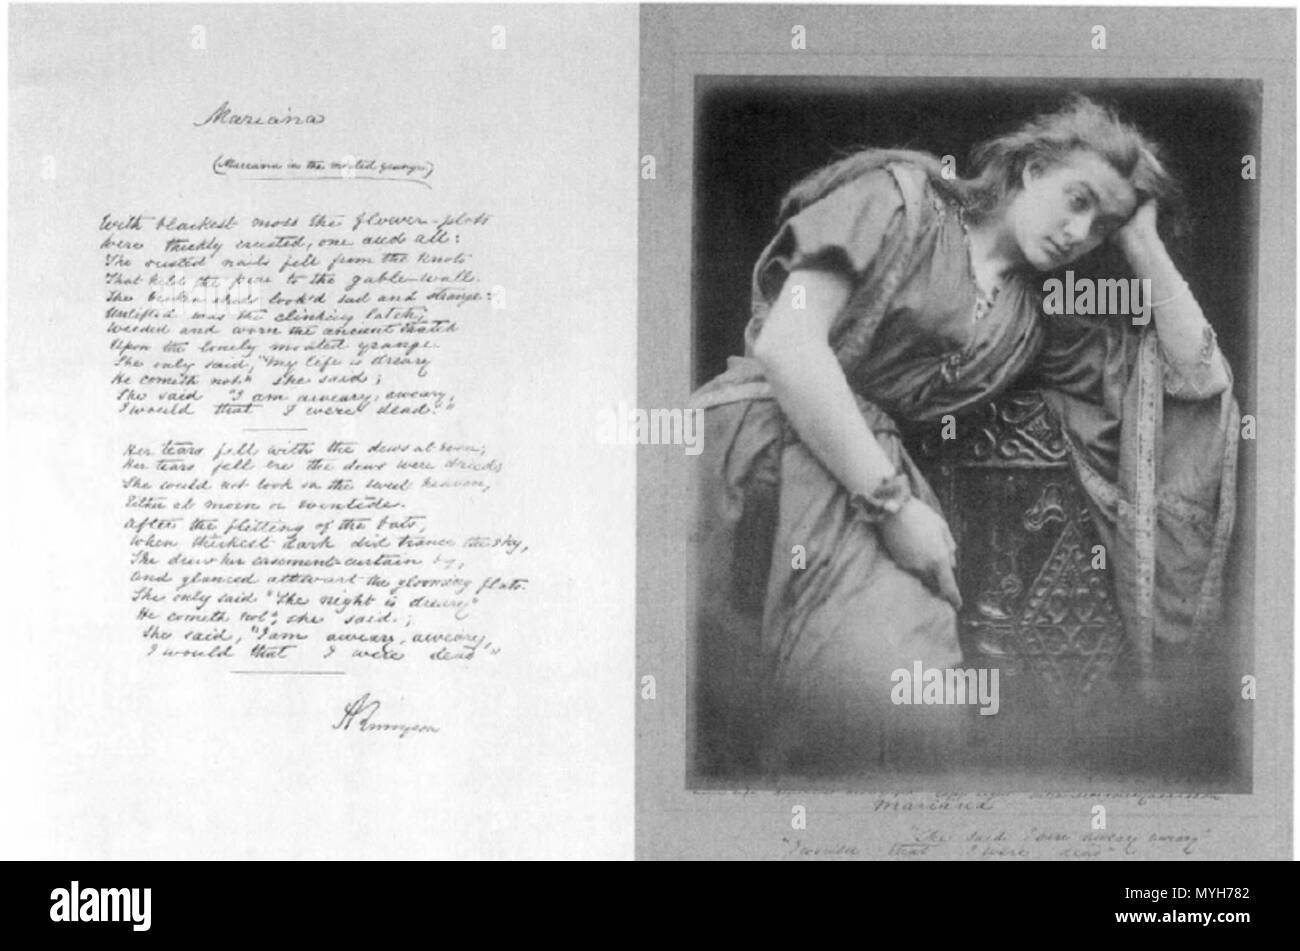 Mariana
(Mariana in the moated grange)
With blackest moss the flower-plots
Were thickly crusted, one and all:
The rusted nails fell from the knots
That held the pear to the gable-wall.
The broken sheds look'd sad and strange:
Unlifted was the clinking latch;
Weeded and worn the ancient thatch
Upon the lonely moated grange.
She only said, "My life is dreary
He cometh not" she said;
She said "I am aweary, aweary,
I would that I were dead."
Her tears fell with the dews at even;
Her tears fell ere the dews were dried;
She could not look on the sweet heaven,
Either at morn or eventide.
After the flitting of the bats,
When thickest dark did trance the sky,
She drew her casement-curtain by,
And glanced athwart the glooming flats.
She only said "The night is dreary"
He cometh not", she said;
She said, "I am aweary, aweary,
I would that I were dead"
A Tennyson
Mariana
"She said I am aweary aweary"
"I would that I were dead"
alamy
Image ID: MYH782
www.alamy.com